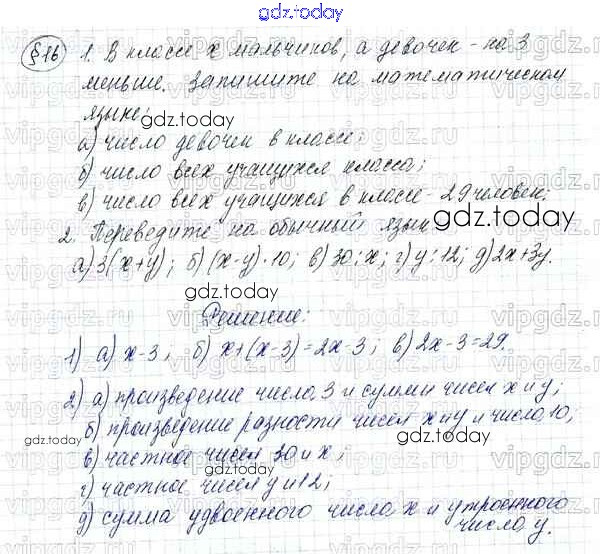 gdz.today
§16 1. В классе x мальчиков, а девочек - на 3
меньше. Запишите на математическом
языке:
а) число девочек в классе;
б) число всех учащихся класса;
в) число всех учащихся в классе - 29 человек;
2. Переведите на обычный язык
а) 3(x+y); б) (x-y)·10; в) 30:x; г) y:12; д) 2x+3y.
Решение:
1) а) x-3; б) x+(x-3)=2x-3; в) 2x-3=29.
2) а) произведение числа 3 и суммы чисел x и y;
б) произведение разности чисел x и y и числа 10;
в) частное чисел 30 и x;
г) частное чисел y и 12;
д) сумма удвоенного числа x и утроенного
числа y.
gdz.today
gdz.today
gdz.today
gdz.today
gdz.today
gdz.today